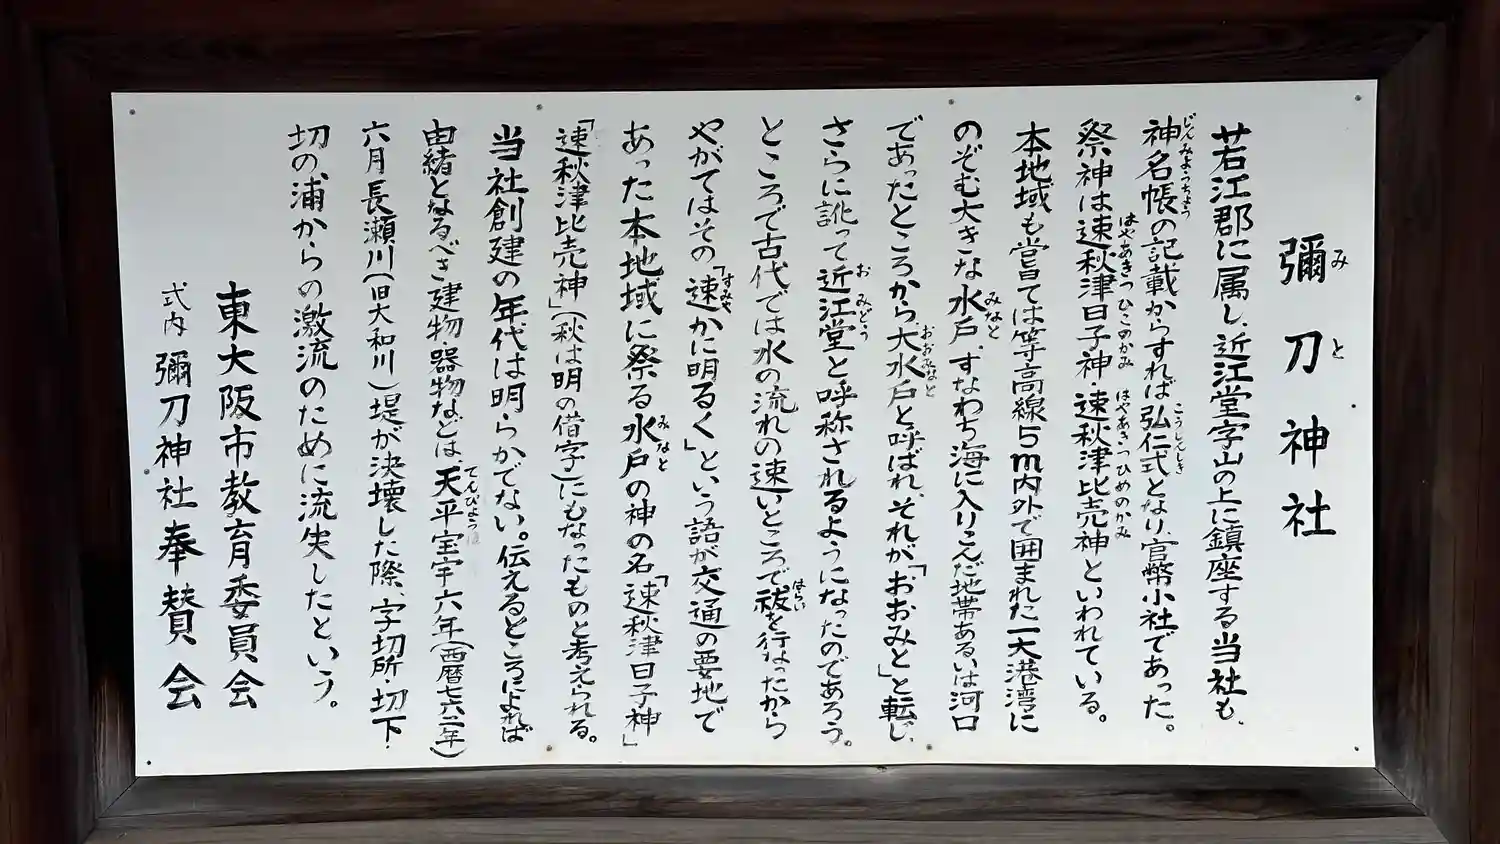 彌刀神社
若江郡に属し、近江堂字山の上に鎮座する当社も、
神名帳の記載からすれば弘仁式となり、官幣小社であった。
祭神は速秋津日子神・速秋津比売神といわれている。
本地域も嘗ては等高線5m内外で囲まれた一大港湾に
のぞむ大きな水戸、すなわち海に入りこんだ地帯あるいは河口
であったところから、大水戸と呼ばれ、それが「おおみと」と転じ、
さらに訛って近江堂と呼称されるようになったのであろう。
ところで古代では水の流れの速いところで祓を行なったから
やがてはその「速かに明るく」という語が交通の要地で
あった本地域に祭る水戸の神の名「速秋津日子神」
「速秋津比売神」(秋は明の借字)にもなったものと考えられる。
当社創建の年代は明らかでない。伝えるところによれば
由緒となるべき建物・器物などは、天平宝宇六年(西暦七六二年)
六月長瀬川(旧大和川)堤が決壊した際、字切所・切下・
切の浦からの激流のために流失したという。
東大阪市教育委員会
式内 彌刀神社奉賛会